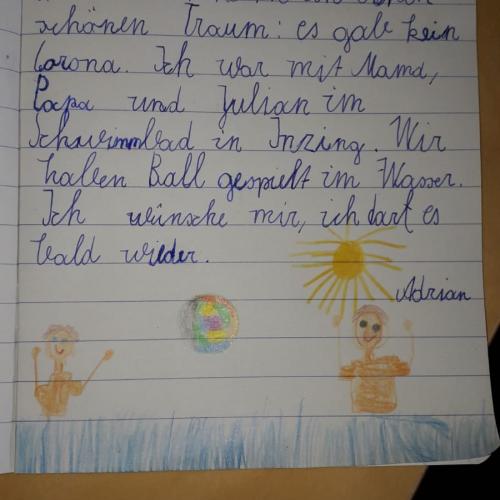 schönen Traum: es gab kein
Corona. Ich war mit Mama,
Papa und Julian im
Schwimmbad in Inzing. Wir
haben Ball gespielt im Wasser.
Ich wünsche mir, ich darf es
bald wieder.
Adrian